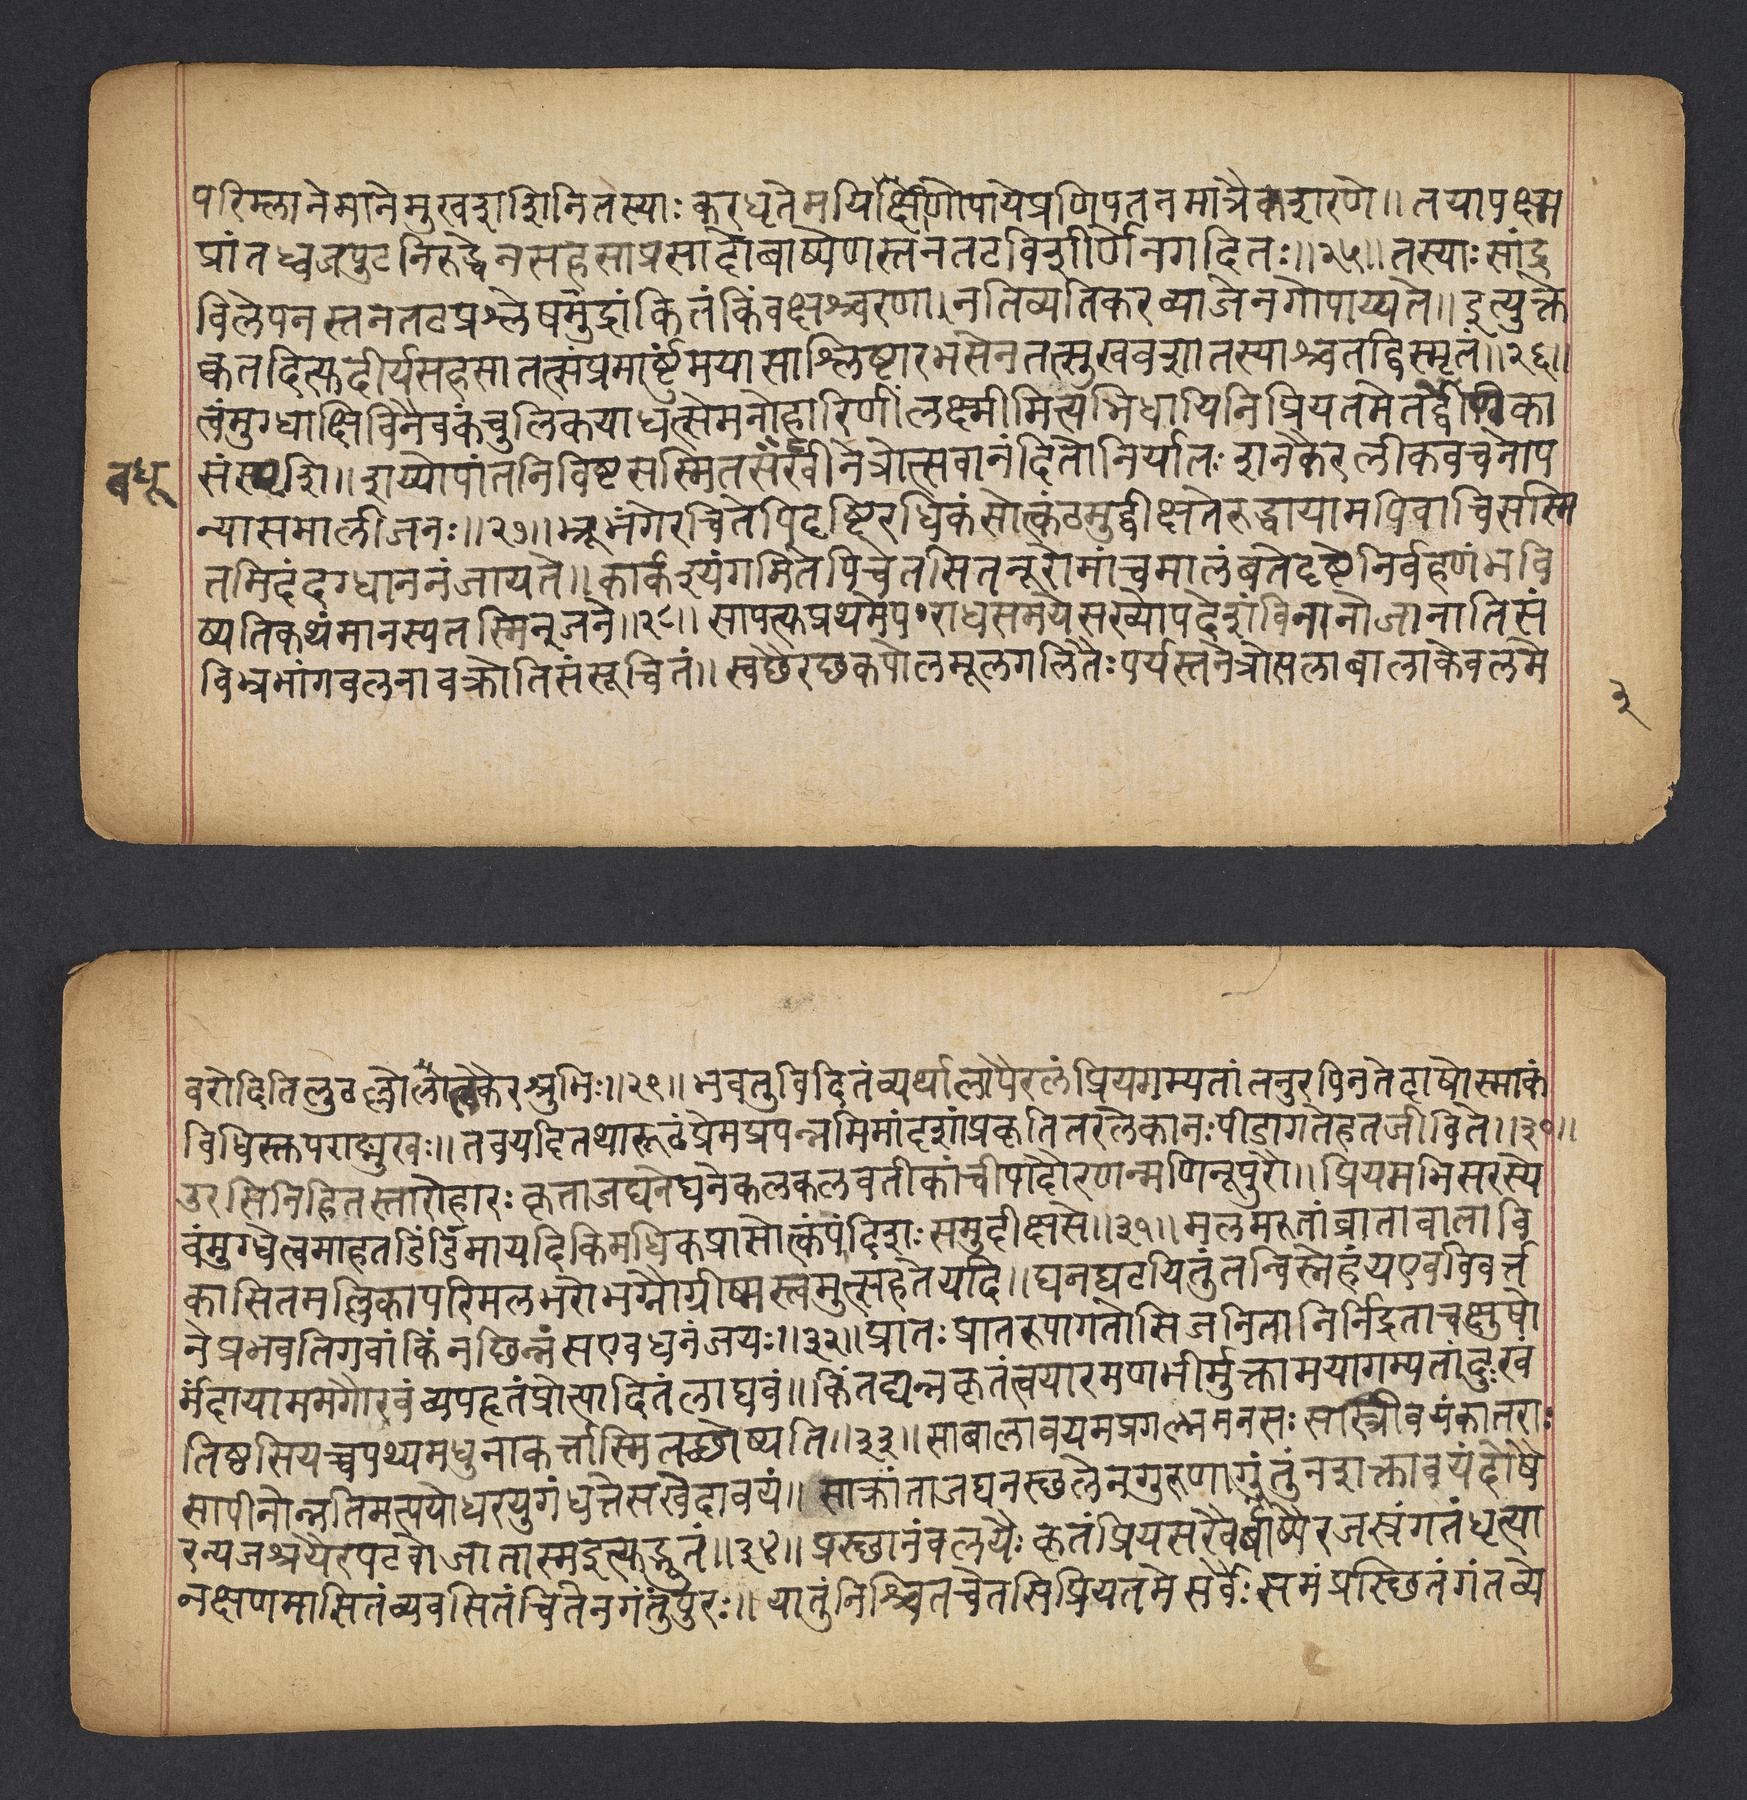 परिम्लाने माने मुखशशिनि तस्याः करधृते मयि क्षीणोपाये प्रणिपतनमात्रैकशरणे॥ तया पक्ष्म
प्रांतध्वजपुटनिरुद्धेन सहसा प्रसादो बाष्पेण स्तनतटविशीर्णेन गदितः॥२५॥ तस्याः सांद्र
विलेपनस्तनतटप्रश्लेषमुद्रांकितं किं वक्षश्चरणानतिव्यतिकरव्याजेन गोपाय्यते॥ इत्युक्ते
क्वतदित्युदीर्यसहसा तत्संप्रमार्ष्टुं मया साश्लिष्टा रभसेन तत्सुखवशात्तस्याश्च तद्विस्मृतं॥२६॥
त्वं मुग्धाक्षि विनैव कंचुलिकया धत्से मनोहारिणीं लक्ष्मीमित्यभिधायिनि प्रियतमे तद्वीटिका
बधू
संस्पृशि॥ शय्योपांतनिविष्टसस्मितसखीनेत्रोत्सवानंदितो निर्यातः शनकैरलीकवचनोप
न्यासमालीजनः॥२७॥ भ्रूभंगे रचितेपि दृष्टिरधिकं सोत्कंठमुद्वीक्षते रुद्धायामपि वाचि सस्मि
तमिदं दग्धाननं जायते॥ कार्कश्यं गमितेपि चेतसि तनू रोमांचमालंबते दृष्टे निर्वहणं भवि
ष्यति कथं मानस्य तस्मिन् जने॥२८॥ सा पत्युः प्रथमेपराधसमये सख्योपदेशं विना नो जानाति सं
विभ्रमांगवलनावक्रोतिसंसूचितं॥ स्वछैरछकपोलमूलगलितैः पर्यस्तनेत्रोत्पला बाला केवलमे
३
वरोदिति लुठल्लोलोलकैरश्रुभिः॥२९॥ भवतु विदितं व्यर्थालापैरलं प्रिय गम्यतां तनुरपि न ते दोषोस्माकं
विधिस्तु पराङ्मुखः॥ तव यदि तथारूढं प्रेम प्रपन्नमिमां दशां प्रकृतितरले का नः पीडा गते हतजीविते॥३०॥
उरसि निहितस्तारो हारः कृता जघने घने कलकलवती कांची पादौ रणन्मणिनूपुरौ॥ प्रियमभिसरस्ये
वं मुग्धे त्वमाहतडिंडिमा यदि किमधिकत्रासोत्कंपं दिशः समुदीक्षसे॥३१॥ मलमरुतां व्राता वाता वि
कासितमल्लिकापरिमलभरो भग्नो ग्रीष्मस्त्वमुत्सहते यदि॥ घन घटयितुं तन्विस्नेहं य एव विवर्त्त
ने प्रभवति गवां किं नछिन्नं स एव धनंजयः॥३२॥ प्रातः प्रातरुपागतोसि जनिता निर्निद्रता चक्षुषो
र्मंदाया मम गौरवं व्यपहृतं प्रोत्सादितं लाघवं॥ किं तद्यन्न कृतं त्वया रमण भीर्मुक्ता मया गम्यतां दुःखं
तिष्ठसि यच्च पथ्यमधुना कर्त्तास्मि तच्छ्रोष्यति॥३३॥ सा बाला वयमप्रगल्भमनसः सा स्त्री वयं कातराः
सा पीनोन्नतिमत्पयोधरयुगं धत्ते सखेदा वयं॥ साक्रांता जघनस्छलेन गुरुणा गंतुं न शक्ता वयं दोषै
रन्यजनाश्रयैरपटवो जाता स्म इत्यद्भुतं॥३४॥ प्रस्छानं वलयैः कृतं प्रियसखैर्बाष्पैरजस्रं गतं धृत्या
न क्षणमासितं व्यवसितं चित्तेन गंतुं पुरः॥ यातुं निश्चितचेतसि प्रियतमे सर्वैः समं प्रस्छितं गंतव्ये